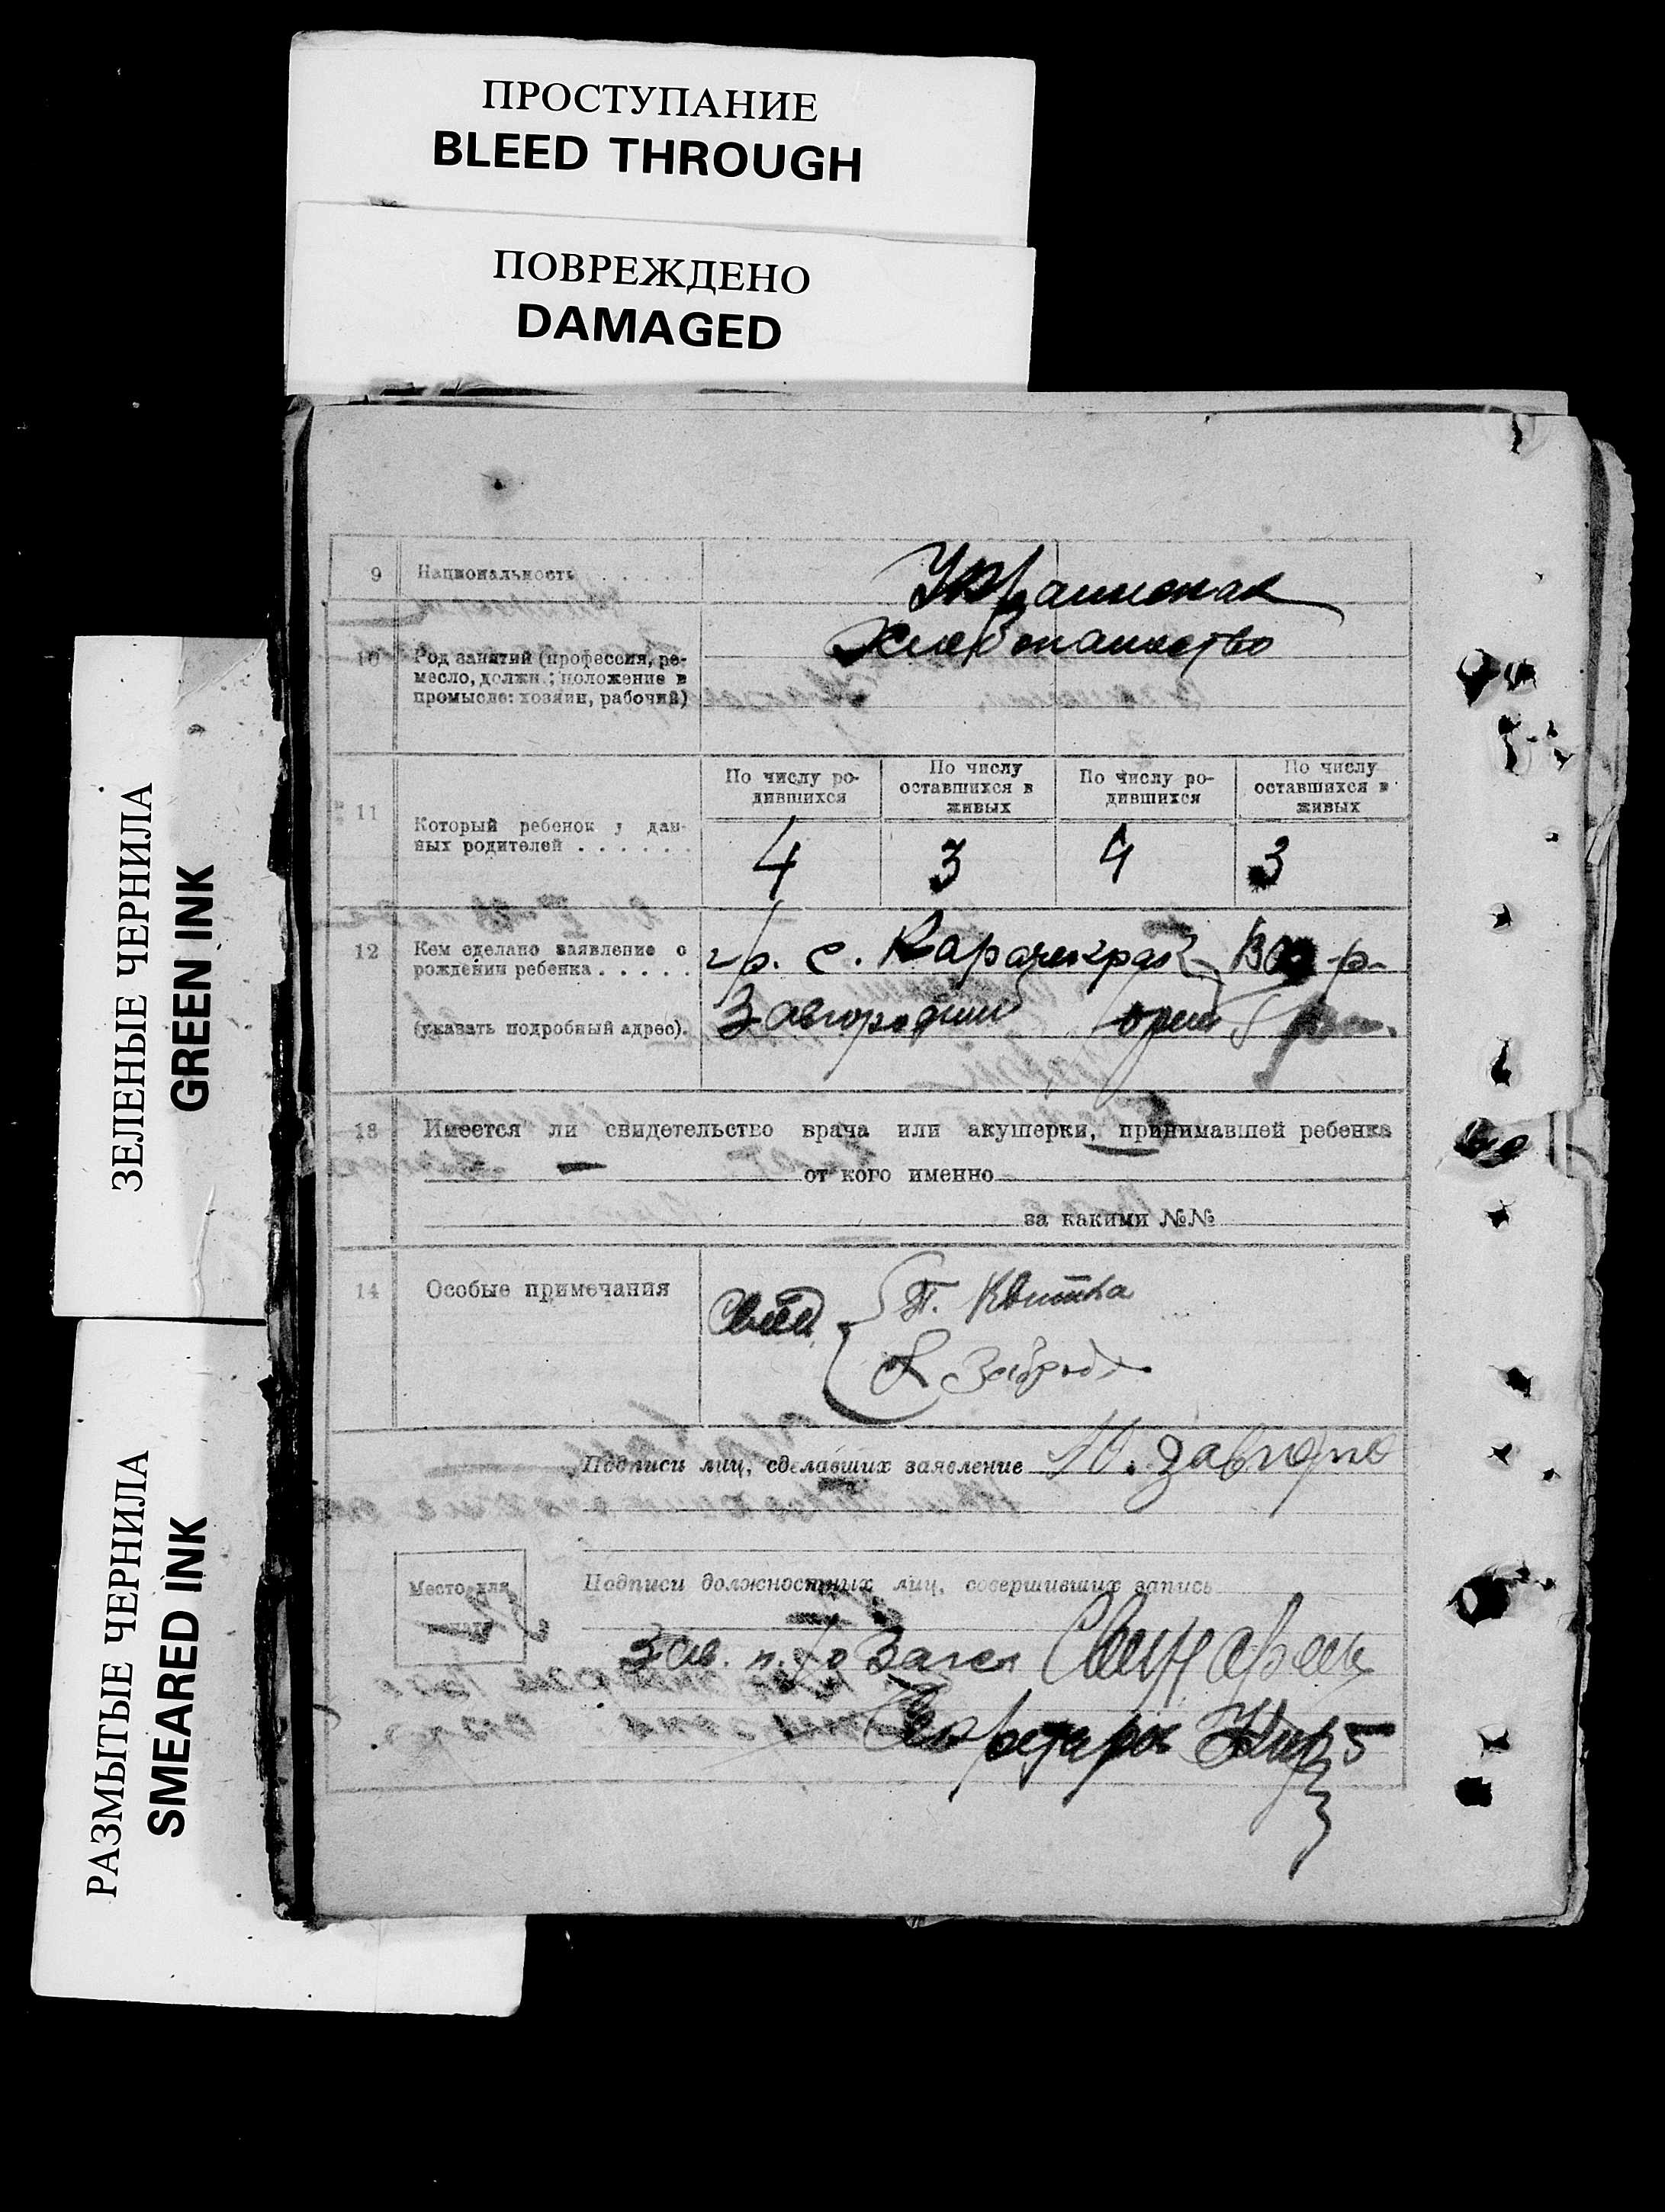 ПРОСТУПАНИЕ
BLEED THROUGH
ПОВРЕЖДЕНО
DAMAGED
ЗЕЛЕНЫЕ ЧЕРНИЛА
GREEN INK
РАЗМЫТЫЕ ЧЕРНИЛА
SMEARED INK
9 Национальность . . . . . Украинская
10 Род занятий (профессия, ре-
месло, должн.; положение в
промысле: хозяин, рабочий)
Хлебопашество
11 Который ребенок у дан-
ных родителей . . . . . .
По числу ро-
дившихся
По числу
оставшихся в
живых
По числу ро-
дившихся
По числу
оставшихся в
живых
4 3 4 3
12 Кем сделано заявление о
рождении ребенка . . . . .
(указать подробный адрес).
гр. с.
Завгородний
13 Имеется ли свидетельство врача или акушерки, принимавшей ребенка
— от кого именно
за какими №№
14 Особые примечания
Свид. Т. Квитка
Подписи лиц, сделавших заявление Ю. Завгоро
Место для
Подписи должностных лиц, совершивших запись
Зав. Загса
Секретарь